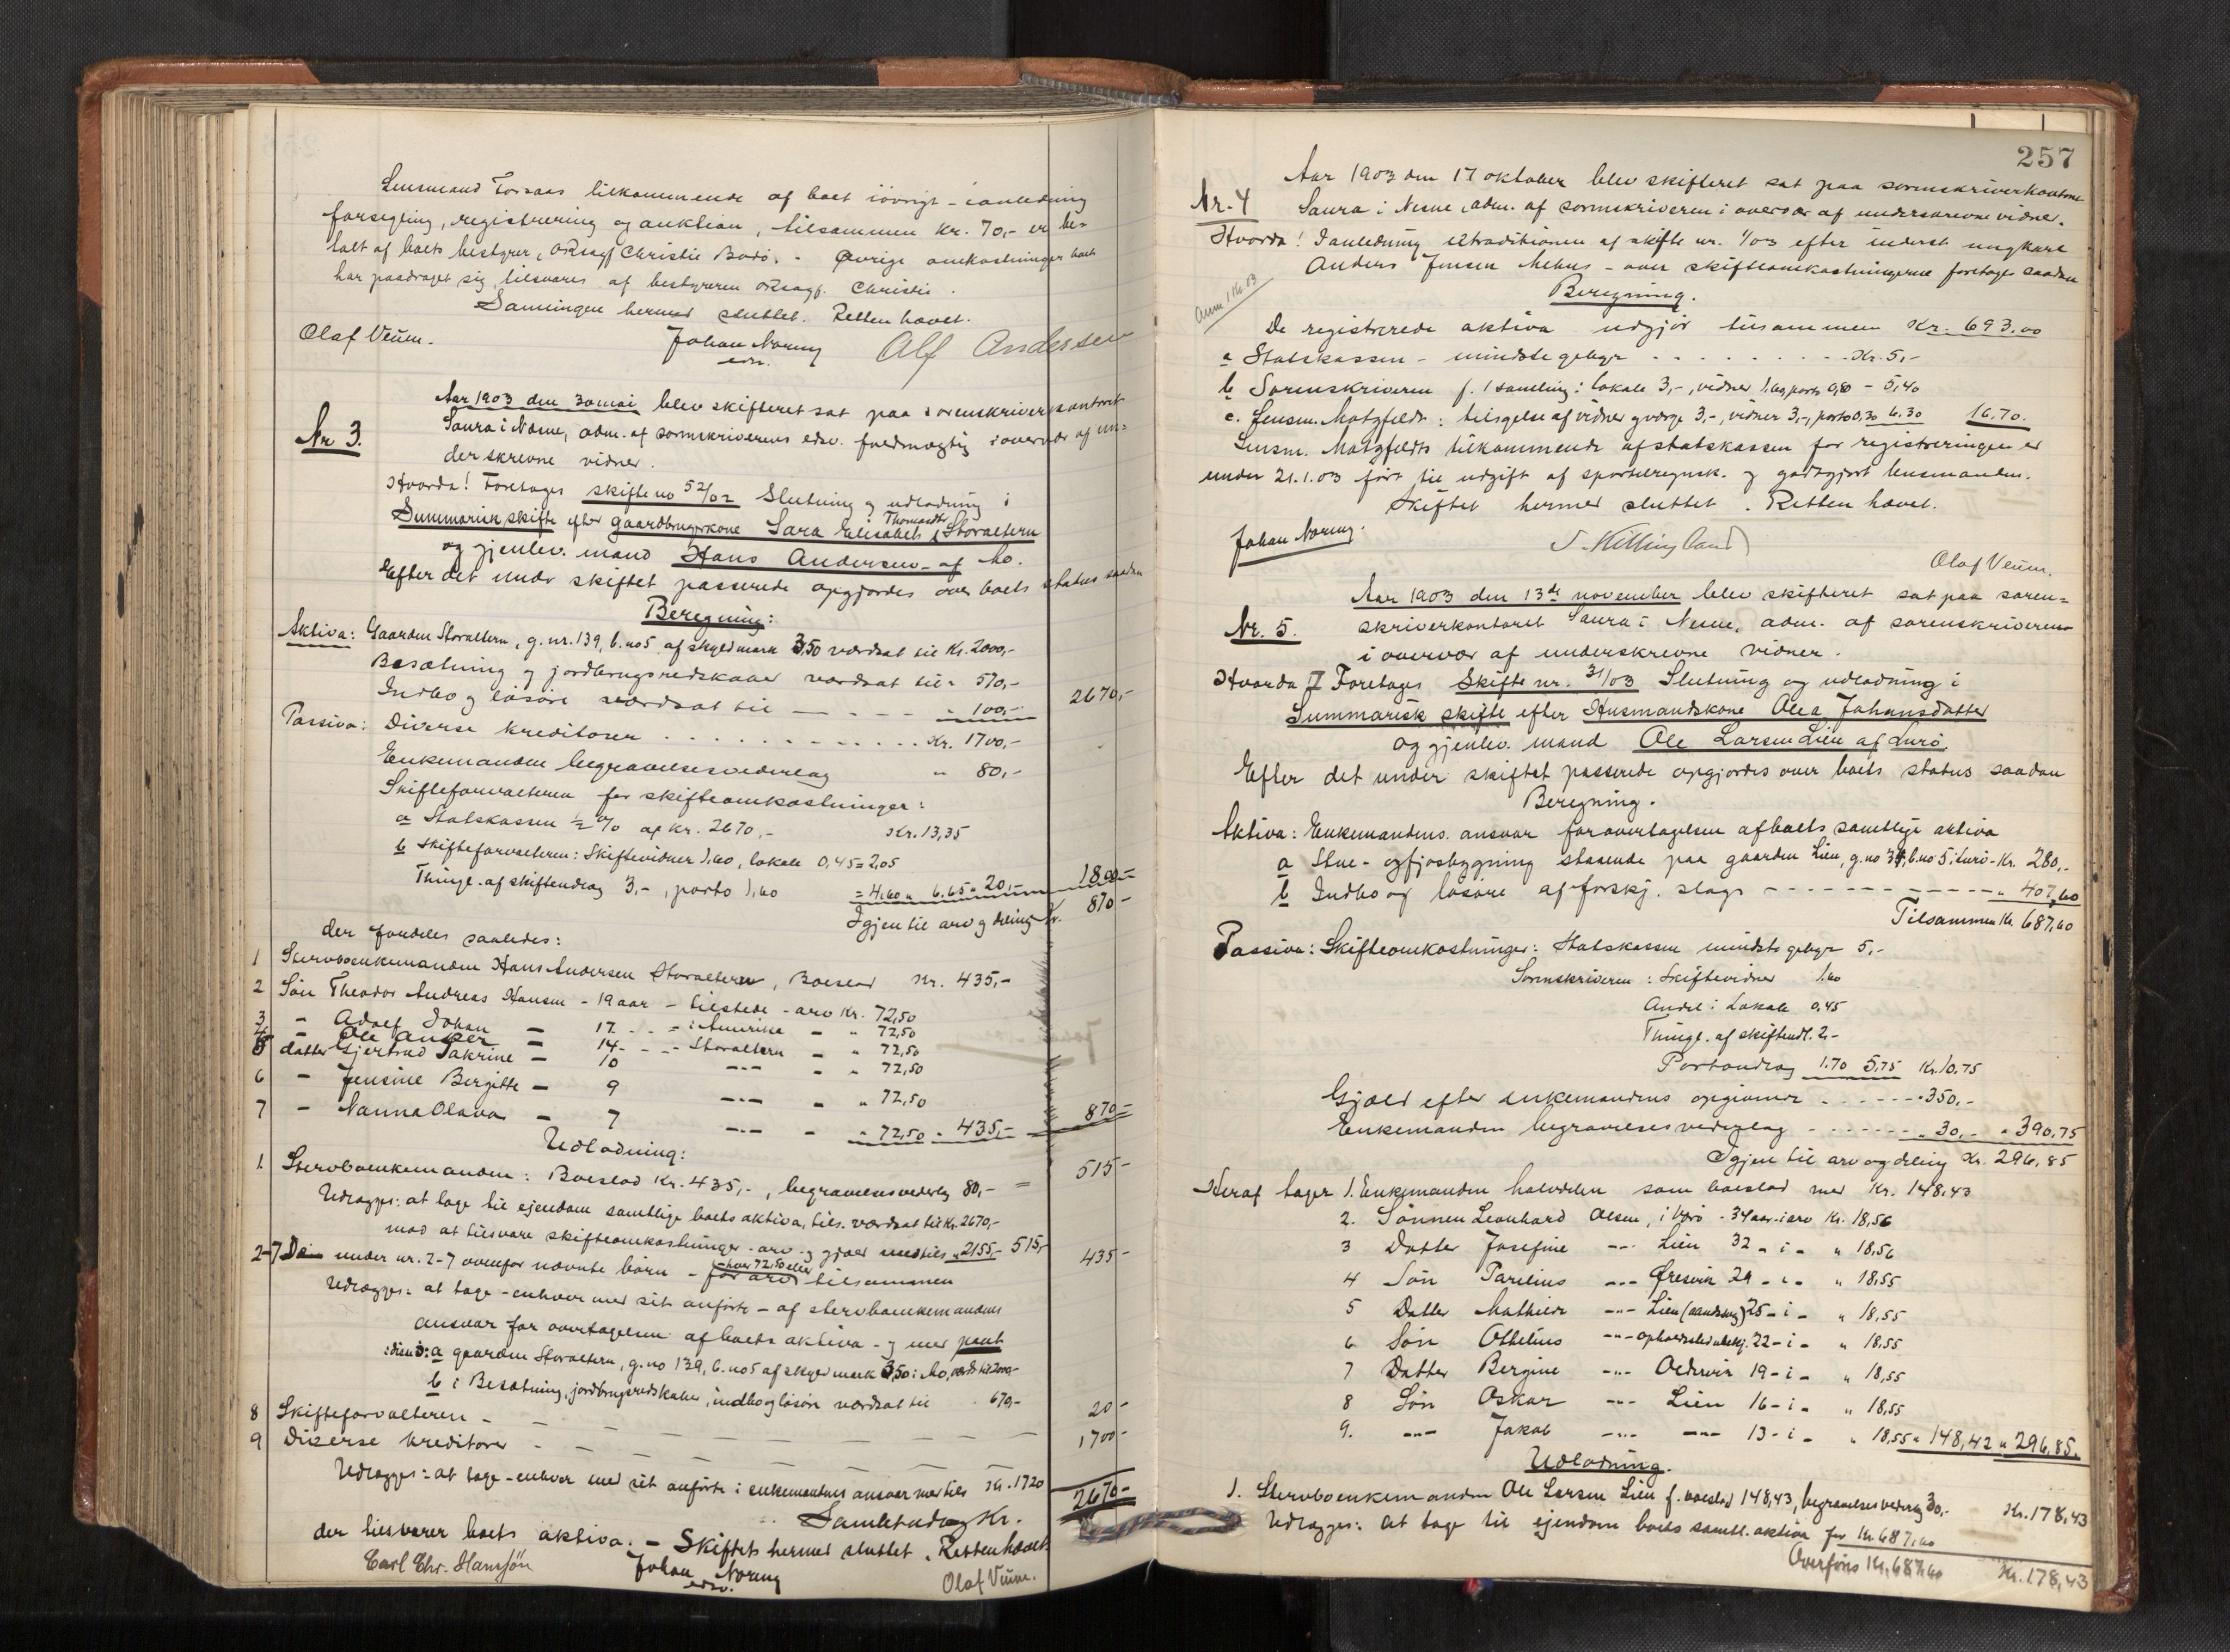 Lensmand Forsaas tilkommende af boet iövrigt - ianledning
forsegling, registrering og auktion, tilsammen Kr. 70,- er be-
talt af boets bestyrer, Christie Bodö. - Övrige omkostninger boet
har paadraget sig tilsvares af bestyreren Christie.
Samlingen hermed sluttet. Retten hævet.
Olaf Veum.
Johan Noreng
edsv.
Alf Andersen
Nr 3.
Aar 1903 den 30 mai blev skifteret sat paa sorenskriverkontoret
Saura i Nesne, adm. af sorenskriverens edsv. fuldmægtig i overvær af un-
derskrevne vidner.
Hvorda! Foretages skifte no 52/02 Slutning og udlodning i
Summarisk skifte efter gaardbrugerkone Sara Elisabeth Thomasdtr Storaltern
og gjenlev. mand Hans Andersen - af Mo.
Efter det under skiftet passerede opgjordes over boets status saadan
Beregning:
Aktiva: Gaarden Storaltern, g. nr. 139, b. no 5 af skyldmark 3,50 værdsat til Kr. 2000,-
Besætning og jordbrugsredskaber værdsat til " 570,-
Indbo og lösöre værdsat til - - - " 100,- 2670,-
Passiva: Diverse kreditorer . . . . . . . Kr. 1700,-
Enkemanden begravelsesvederlag " 80,-
Skifteforvalteren for skifteomkostninger:
a Statskassen ½ % af kr. 2670,- Kr. 13,35
b Skifteforvalteren: Skiftevidner 1,60, lokale 0,45 = 2,05
Thingl. af skifteudlag 3,-, porto 1,60 = 4,60 " 6.65 " 20,- 1800-
Igjen til arv og deling Kr. 870-
der fordeles saaledes:
1 Stervboenkemanden Hans Andersen Storaltern, Boeslod Kr. 435,-
2 Sön Theodor Andreas Hansen - 19 aar - tilstede - arv Kr. 72,50
3 - Adolf Johan - 17 - - i Amerika - " 72,50
4 - Ole Anfer - 14 - - Storaltern - " 72,50
5 datter Gjertrud Pakrine - 10 -"- - " 72,50
6 - Jensine Bergitte - 9 -"- - " 72,50
7 - Nanna Olava - 7 -"- - " 72,50 " 435,- 870-
Udlodning:
1. Stervboenkemanden: Boeslod Kr. 435,-, begravelsesvederlag 80,- = 515-
Udlægges: at tage til ejendom samtlige boets aktiva, tils. værdsat til Kr. 2670,-
mod at tilsvare skifteomkostninger - arv - og gjæld med tils. " 2155,- 515,-
2-7 De under nr. 2-7 ovenfor nævnte börn - for arv - hver 72,50 eller tilsammen 435-
Udlægges: at tage - enhver med sit anförte - af stervboenkemandens
ansvar for overtagelsen af boets aktiva - og med pant
: a gaarden Storaltern, g. no 139, b. no 5 af skyld mark 3,50 i Mo, værdt til 2000,-
b i Besætning, jordbrugsredskaber, indbo og lösöre værdsat til " 670,-
8 Skifteforvalteren - - - - - - 20-
9 Diverse kreditorer - - - - - - 1700-
Udlægges: at tage - enhver med sit anförte i enkemandens ansvar med tils Kr. 1720
Samlet udlæg Kr. 2670-
der tilsvarer boets aktiva. - Skiftet hermed sluttet. Retten hævet.
Carl Chr. Hansjön
Johan Noreng
edsv.
Olaf Veum.
257
Aar 1903 den 17 oktober blev skifteret sat paa sorenskriverkontoret
Nr. 4 Saura i Nesne, adm. af sorenskriveren i overvær af underskrevne vidner.
Hvorda! I anledning extraditionen af skifte nr. 1/03 efter inderst ungkarl
Anders Jensen Mehus - over skifteomkostningerne foretages saadan
Beregning.
De registrerede aktiva udgjör tilsammen Kr. 693.00
a Statskassen - mindste gebyr . . . . . Kr. 5,-
b Sorenskriveren f. 1 samling: lokale 3,-, vidner 1,60, porto 0,80 - 5,40
c. Lensm. Motzfeldt: tilsigelse af vidner og værge 3,-, vidner 3,-, porto 0,30 6.30 16.70.
Lensm. Motzfeldts tilkommende af statskassen for registreringen er
under 21.1.03 fört til udgift af sportelregnsk. og godtgjort lensmanden.
Skiftet hermed sluttet. Retten hævet.
Johan Noreng.
Olaf Veum.
Aar 1903 den 13de november blev skifteret sat paa soren-
Nr. 5. skriverkontoret Saura i Nesne, adm. af sorenskriveren
i overvær af underskrevne vidner.
Hvorda! Foretages Skifte nr. 31/03 Slutning og udlodning i
Summarisk skifte efter Husmandskone Olea Johansdatter
og gjenlev. mand Ole Larsen Lien af Lurö.
Efter det under skiftet passerede opgjordes over boets status saadan
Beregning.
Aktiva: Enkemandens ansvar for overtagelsen af boets samtlige aktiva
a Stue- og fjösbygning staaende paa gaarden Lien, g. no 34, b. no 5 i Lurö - Kr. 280,-
b Indbo og lösöre af forskj. slags - - - - " 407,60
Tilsammen Kr. 687,60
Passiva: Skifteomkostninger: Statskassen mindste gebyr 5,-
Sorenskriveren: Skiftevidner 1,60
Andel i Lokale 0,45
Thingl. af skifteudl. 2,-
Portoudlæg 1.70 5,75 Kr. 10.75
Gjæld efter enkemandens opgivende - - - - 350,-
Enkemanden begravelsesvederlag - - - - " 30,- " 390,75
Igjen til arv og deling Kr. 296,85
Heraf tager 1. Enkemanden halvdelen som boeslod med Kr. 148,43
2. Sönnen Leonhard Olsen, i Lurö - 34 aar - i arv Kr. 18,56
3 Datter Josefine -"- Lien 32 - i - " 18,56
4 Sön Parelius -"- Öresvik 29 - i - " 18,55
5 Datter Mathilde -"- Lien 25 - i - " 18,55
6 Sön Othelius -"- opholdsted ubekj. 22 - i - " 18,55
7 Datter Bergine -"- 19 - i - " 18,55
8 Sön Oskar -"- Lien 16 - i - " 18,55
9. -"- Jakob -"- -"- 13 - i - " 18,55 " 148,42 " 296,85.
Udlodning.
1. Stervboenkemanden Ole Larsen Lien f. boeslod 148,43, begravelsesvederlag 30,- Kr. 178,43
Udlægges: at tage til ejendom boets samtl. aktiva for Kr. 687,60
Overföres Kr. 687,60 Kr. 178,43